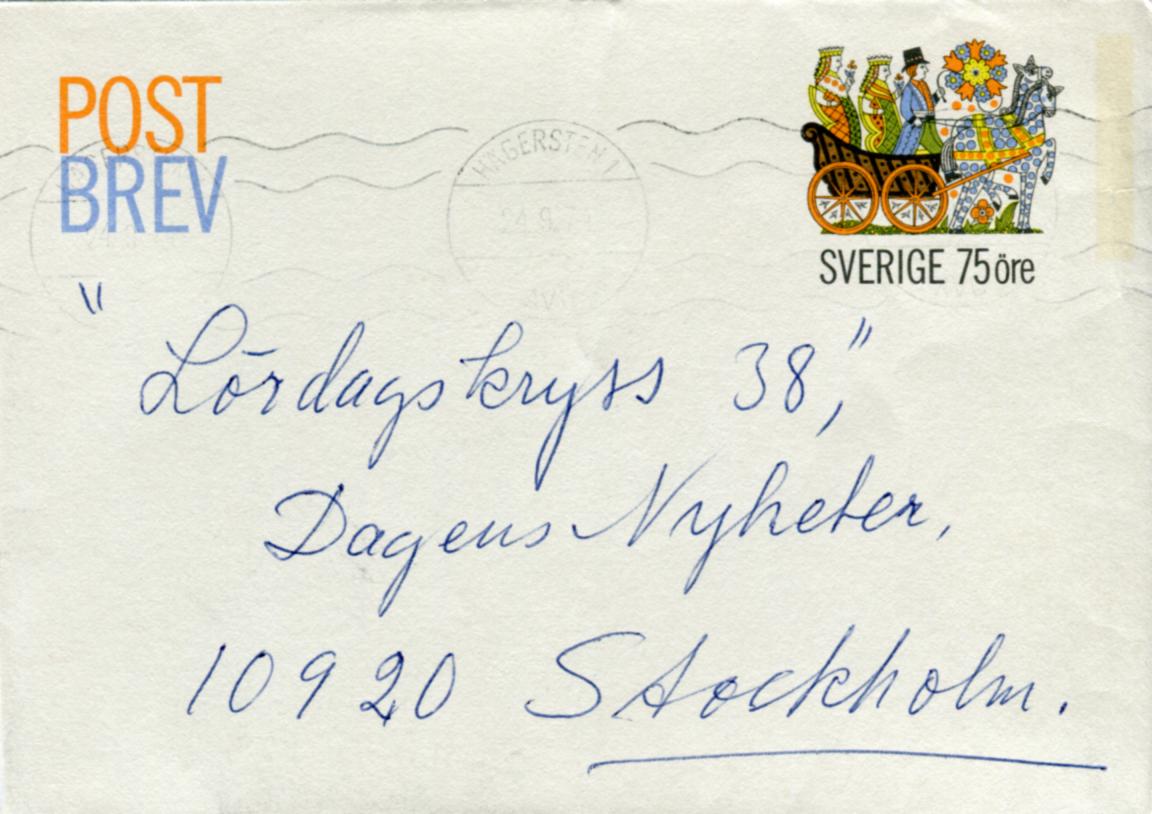 POST
BREV
SVERIGE 75 öre
HÄGERSTEN 1
"Lördagskryss 38",
Dagens Nyheter,
10920 Stockholm.